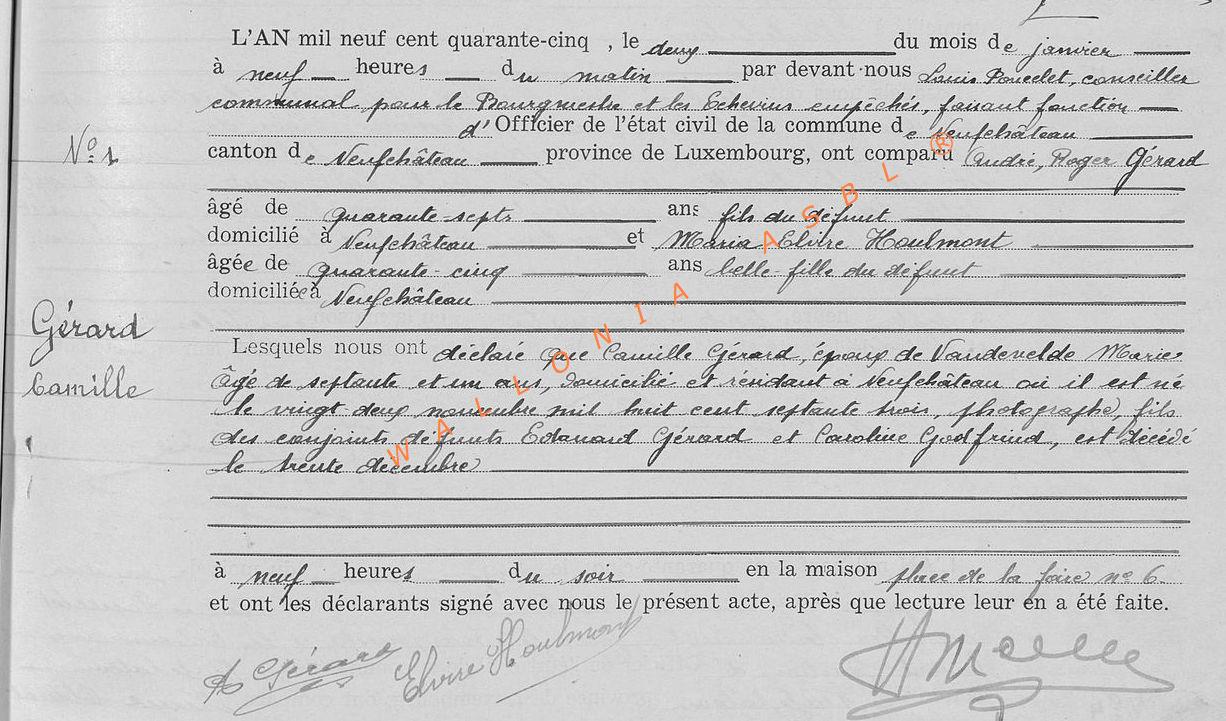 L'AN mil neuf cent quarante-cinq , le deux du mois de janvier
à neuf heures du matin par devant nous Louis Poncelet, conseiller
communal, pour le Bourgmestre et les Echevins empêchés, faisant fonction
d'Officier de l'état civil de la commune de Neufchâteau
Nº 1
canton de Neufchâteau province de Luxembourg, ont comparu André, Roger Gérard
âgé de quarante-sept ans fils du défunt
domicilié à Neufchâteau et Maria Elvire Houlmont
âgée de quarante-cinq ans belle-fille du défunt
domiciliée à Neufchâteau
Gérard
Camille
Lesquels nous ont déclaré que Camille Gérard, époux de Vandevelde Marie
âgé de septante et un ans, domicilié et résidant à Neufchâteau où il est né
le vingt-deux novembre mil huit cent septante trois, photographe, fils
des conjoints défunts Edouard Gérard et Caroline Godfrind, est décédé
le trente décembre
à neuf heures du soir en la maison place de la foire nº 6.
et ont les déclarants signé avec nous le présent acte, après que lecture leur en a été faite.
A Gérard Elvire Houlmont
WALLONIA ASBL ®